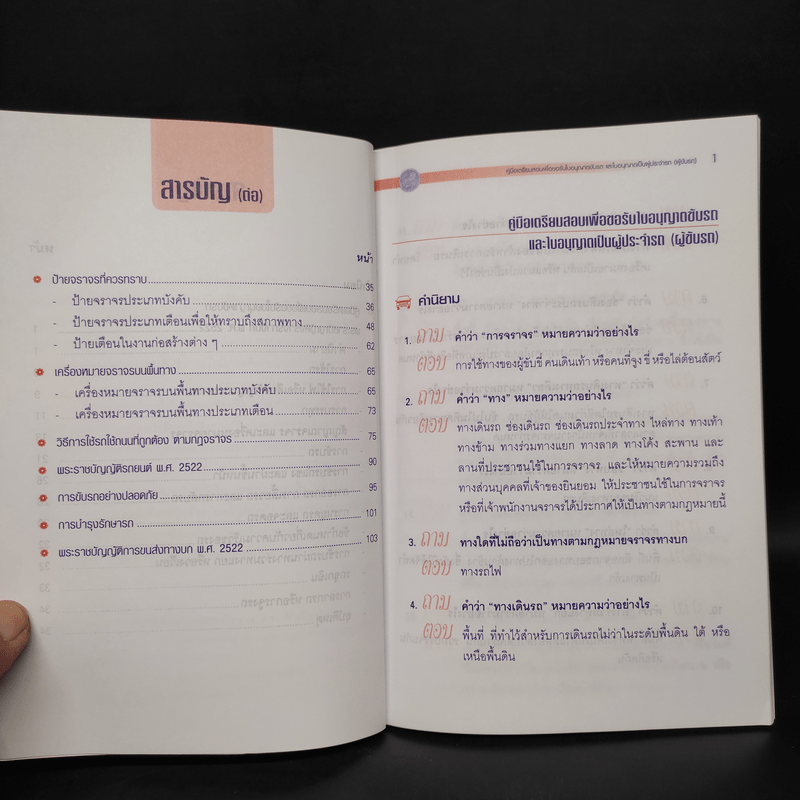 สารบัญ (ต่อ)
หน้า
ป้ายจราจรที่ควรทราบ 35
- ป้ายจราจรประเภทบังคับ 36
- ป้ายจราจรประเภทเตือนเพื่อให้ทราบถึงสภาพทาง 48
- ป้ายเตือนในงานก่อสร้างต่าง ๆ 62
เครื่องหมายจราจรบนพื้นทาง 65
- เครื่องหมายจราจรบนพื้นทางประเภทบังคับ 65
- เครื่องหมายจราจรบนพื้นทางประเภทเตือน 73
วิธีการใช้รถใช้ถนนที่ถูกต้อง ตามกฎจราจร 75
พระราชบัญญัติรถยนต์ พ.ศ. 2522 90
การขับรถอย่างปลอดภัย 95
การบำรุงรักษารถ 101
พระราชบัญญัติการขนส่งทางบก พ.ศ. 2522 103
คู่มือเตรียมสอบเพื่อขอรับใบอนุญาตขับรถ และใบอนุญาตเป็นผู้ประจำรถ (ผู้ขับรถ) 1
คู่มือเตรียมสอบเพื่อขอรับใบอนุญาตขับรถ
และใบอนุญาตเป็นผู้ประจำรถ (ผู้ขับรถ)
คำนิยาม
1. ถาม คำว่า "การจราจร" หมายความว่าอย่างไร
ตอบ การใช้ทางของผู้ขับขี่ คนเดินเท้า หรือคนที่จูง ขี่ หรือไล่ต้อนสัตว์
2. ถาม คำว่า "ทาง" หมายความว่าอย่างไร
ตอบ ทางเดินรถ ช่องเดินรถ ช่องเดินรถประจำทาง ไหล่ทาง ทางเท้า
ทางข้าม ทางร่วมทางแยก ทางลาด ทางโค้ง สะพาน และ
ลานที่ประชาชนใช้ในการจราจร และให้หมายความรวมถึง
ทางส่วนบุคคลที่เจ้าของยินยอม ให้ประชาชนใช้ในการจราจร
หรือที่เจ้าพนักงานจราจรได้ประกาศให้เป็นทางตามกฎหมายนี้
3. ถาม ทางใดที่ไม่ถือว่าเป็นทางตามกฎหมายจราจรทางบก
ตอบ ทางรถไฟ
4. ถาม คำว่า "ทางเดินรถ" หมายความว่าอย่างไร
ตอบ พื้นที่ ที่ทำไว้สำหรับการเดินรถไม่ว่าในระดับพื้นดิน ใต้ หรือ
เหนือพื้นดิน